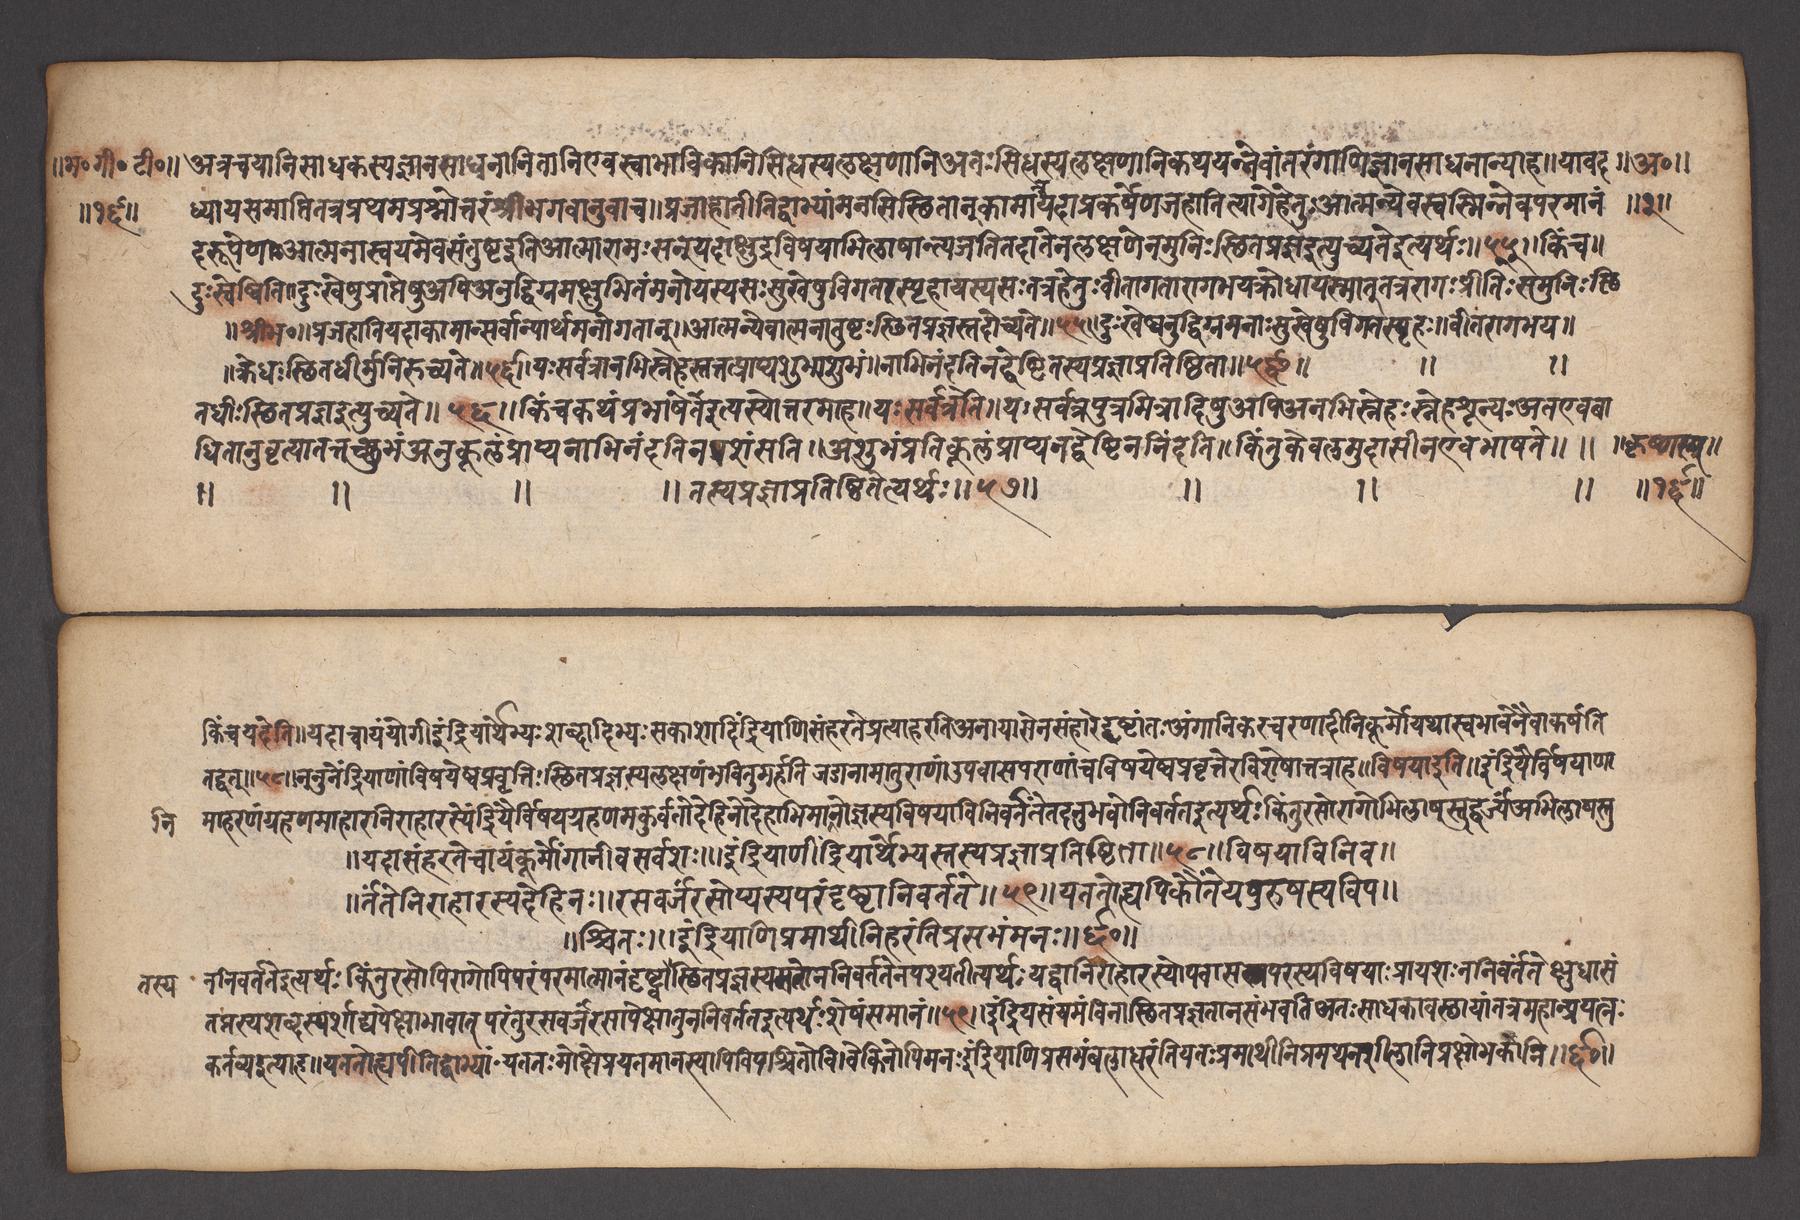 ॥भ॰गी॰टी॰॥ अत्रचयानिसाधकस्यज्ञानसाधनानितानिएवस्वाभाविकानिसिद्धस्यलक्षणानिअतःसिद्धस्यलक्षणानिकथयन्नेवांतरंगाणिज्ञानसाधनान्याह॥यावद ॥अ॰॥
॥१६॥ ध्यायसमाप्तितत्रप्रथमप्रश्नोत्तरंश्रीभगवानुवाच॥प्रजाहातीतिद्वाभ्यांमनसिस्छितान्कामान्यदाप्रकर्षेणजहातित्यागेहेतुःआत्मन्येवस्वस्मिन्नेवपरमानं ॥२॥
दरूपेणआत्मनास्वयमेवसंतुष्टइतिआत्मारामःसन्यदाक्षुद्रविषयाभिलाषान्त्यजतितदातेनलक्षणेनमुनिःस्छितप्रज्ञइत्युच्यतेइत्यर्थः॥५५॥किंच॥
दुःखेष्विति॥दुःखेषुप्राप्तेषुअपिअनुद्विग्नमक्षुभितंमनोयस्यसःसुखेषुविगतास्पृहायस्यसःतत्रहेतुःवीतागतारागभयक्रोधायस्मात्तत्ररागःप्रीतिःसमुनिःस्छि
॥श्रीभ॰॥प्रजहातियदाकामान्सर्वान्पार्थमनोगतान्॥आत्मन्येवात्मनातुष्टःस्छितप्रज्ञस्तदोच्यते॥५५॥दुःखेष्वनुद्विग्नमनाःसुखेषुविगतस्पृहः॥वीतरागभय॥
॥क्रोधःस्छितधीर्मुनिरुच्यते॥५६॥यःसर्वत्रानभिस्नेहस्तत्तत्प्राप्यशुभाशुभं॥नाभिनंदतिनद्वेष्टितस्यप्रज्ञाप्रतिष्ठिता॥५७॥ ॥ ॥
तधीःस्छितप्रज्ञइत्युच्यते॥५६॥किंचकथंप्रभाषेतेत्यस्योत्तरमाह॥यःसर्वत्रेति॥यःसर्वत्रपुत्रमित्रादिषुअपिअनभिस्नेहःस्नेहशून्यःअतएवबा
धितानुवृत्यातत्तच्छुभंअनुकूलंप्राप्यनाभिनंदतिनप्रशंसति॥अशुभंप्रतिकूलंप्राप्यनद्वेष्टिननिंदति॥किंतुकेवलमुदासीनएवभाषते॥ ॥ ॥कृष्णास्य॥
॥ ॥ ॥ ॥तस्यप्रज्ञाप्रतिष्ठितेत्यर्थः॥५७॥ ॥ ॥ ॥ ॥१६॥
किंचयदेति॥यदाचायंयोगीइंद्रियार्थेभ्यःशब्दादिभ्यःसकाशादिंद्रियाणिसंहरतेप्रत्याहरतिअनायासेनसंहारेदृष्टांतःअंगानिकरचरणादीनिकूर्मोयथास्वभावेनैवाकर्षति
तद्वत्॥५८॥ननुनेंद्रियाणांविषयेष्वप्रवृत्तिःस्छितप्रज्ञस्यलक्षणंभवितुमर्हतिजडानामातुराणांउपवासपराणांचविषयेष्वप्रवृत्तेरविशेषात्तत्राह॥विषयाइति॥इंद्रियैर्विषयाणा
नि माहरणंग्रहणमाहारनिराहारस्येंद्रियैर्विषयग्रहणमकुर्वतोदेहिनोदेहाभिमानोज्ञस्यविषयाविनिवर्तंतेतदनुभवोनिवर्ततइत्यर्थःकिंतुरसोरागोभिलाषस्तद्वर्ज्यंअभिलाषस्तु
॥यदासंहरतेचायंकूर्मोगानीवसर्वशः॥इंद्रियाणींद्रियार्थेभ्यस्तस्यप्रज्ञाप्रतिष्ठिता॥५८॥विषयाविनिव॥
॥र्तंतेनिराहारस्यदेहिनः॥रसवर्जंरसोप्यस्यपरंदृष्ट्वानिवर्तते॥५९॥यततोह्यपिकौंतेयपुरुषस्यविप॥
॥श्चितः॥इंद्रियाणिप्रमाथीनिहरंतिप्रसभंमनः॥६०॥
तस्य ननिवर्ततेइत्यर्थःकिंतुरसोपिरागोपिपरंपरमात्मानंदृष्ट्वास्छितप्रज्ञस्यस्वतोननिवर्ततेनपश्यतीत्यर्थःयद्वानिराहारस्योपवासपरस्यविषयाःप्रायशःननिवर्तंतेक्षुधासं
तप्तस्यशब्दस्पर्शाद्यपेक्षाभावात्परंतुरसवर्जंरसापेक्षातुननिवर्ततइत्यर्थःशेषंसमानं॥५९॥इंद्रियसंयमंविनास्छितप्रज्ञतानसंभवतिअतःसाधकावस्छायांतत्रमहान्प्रयत्नः
कर्तव्यइत्याह॥यततोह्यपीतिद्वाभ्यांःयततःमोक्षेप्रयतमानस्यापिविपश्चितोविवेकिनोपिमनःइंद्रियाणिप्रसभंबलाद्धरंतियतःप्रमाथीनिप्रमथनशीलानिप्रक्षोभकानि॥६०॥